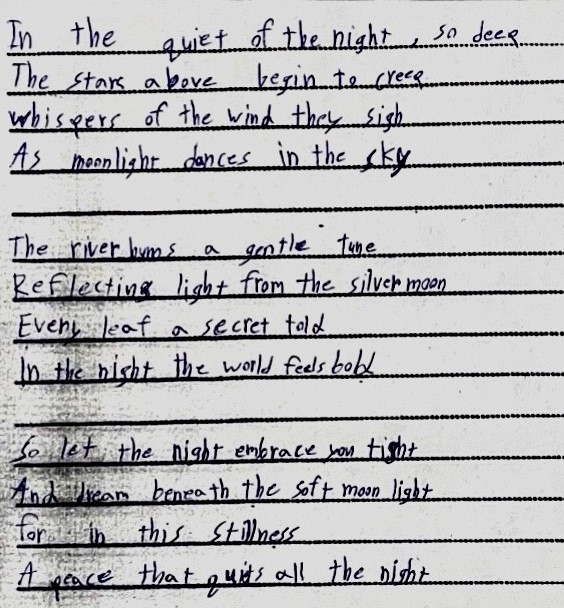 In the quiet of the night, so deep
The stars above begin to creep
whispers of the wind they sigh
As moonlight dances in the sky
The river hums a gentle tune
Reflecting light from the silver moon
Every leaf a secret told
In the night the world feels bold
So let the night embrace you tight
And dream beneath the soft moon light
for in this stillness
A peace that quits all the night